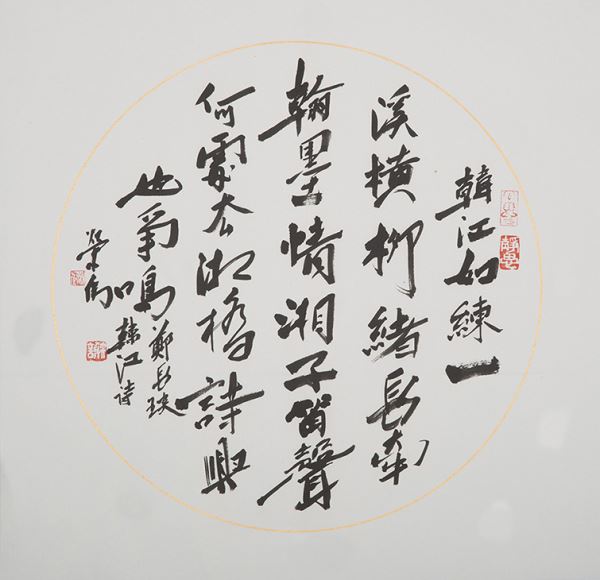 韓江如練一
溪橫柳緒長牽
翰墨情湘子笛聲
何處去湘橋詩興
也爭鳴
鄭長
韓江詩